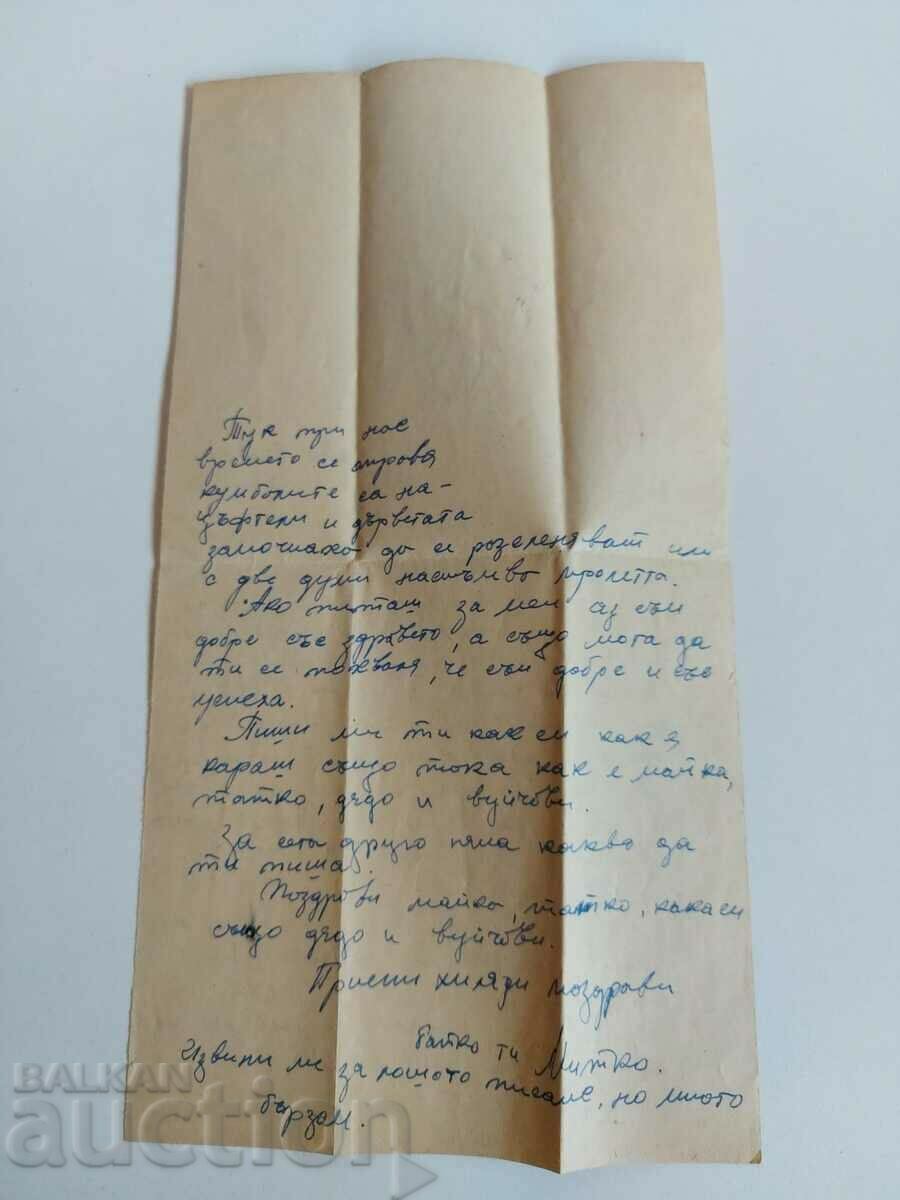 Тук при нас
времето се оправя
кумболите са на-
цъфтели и дърветата
започнаха да се разеленяват или
с две думи настъпва пролетта.
Ако питаш за мен аз съм
добре със здравето, а също мога да
ти се похваля, че съм добре и със
успеха.
Пиши ми ти как си как я
караш също тока как е майка,
татко, дядо и вуйчови.
За сега друго няма какво да
ти пиша.
Поздрави майка, татко, кака си
също дядо и вуйчови.
Приеми хиляди поздрави
батко ти Митко.
Извини ме за лошото писане, но много
бързам.
BALKAN
auction